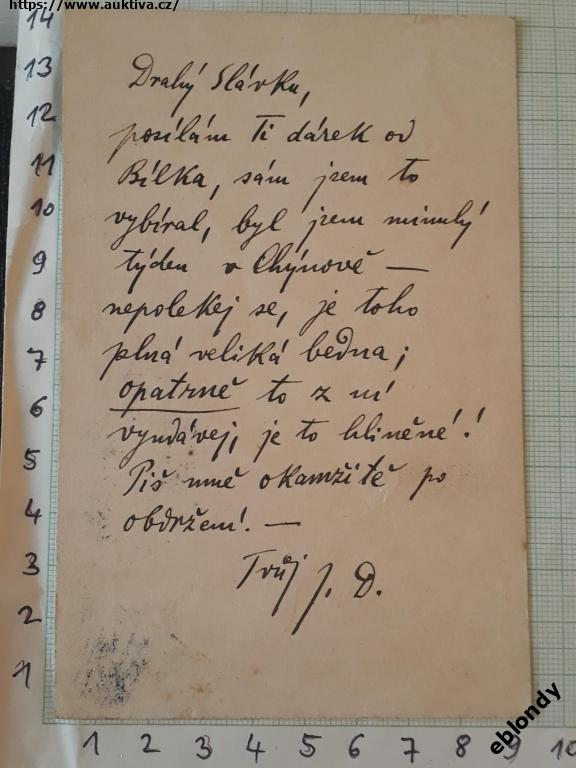 https://www.auktiva.cz/
14
13
12
11
10
9
8
7
6
5
4
3
2
1
Drahý Slávku,
posílám Ti dárek od
Bílka, sám jsem to
vybíral, byl jsem minulý
týden v Chýnově —
nepolekej se, je toho
plná veliká bedna;
opatrně to z ní
vyndávej, je to hliněné!!
Piš mně okamžitě po
obdržení. —
Tvůj J. D.
1 2 3 4 5 6 7 8 9 10
eblondy